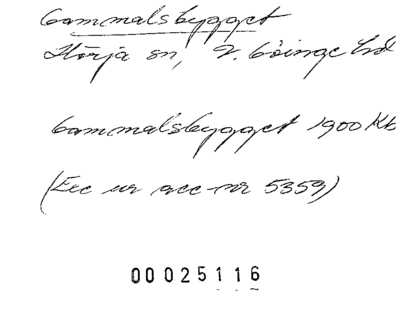 Gammalsbygget
Hörja sn, V. Göinge hd
Gammalsbygget 1900 Kb
(Exc ur acc-nr 5359)
00025116